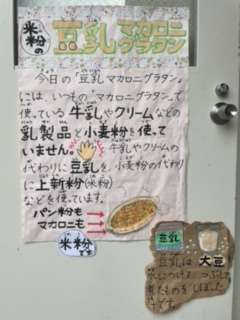 米粉の
豆乳マカロニ
グラタン
今日の「豆乳マカロニグラタン」
には、いつもの「マカロニグラタン」で
使っている牛乳やクリームなどの
乳製品と小麦粉を使って
いません。牛乳やクリーム
の代わりに豆乳を、小麦粉の代わり
に上新粉(米粉)
などを使っています。
パン粉も
マカロニも
米粉です
豆乳 大豆
豆乳は
つけてつぶして
たものをしぼった
です。